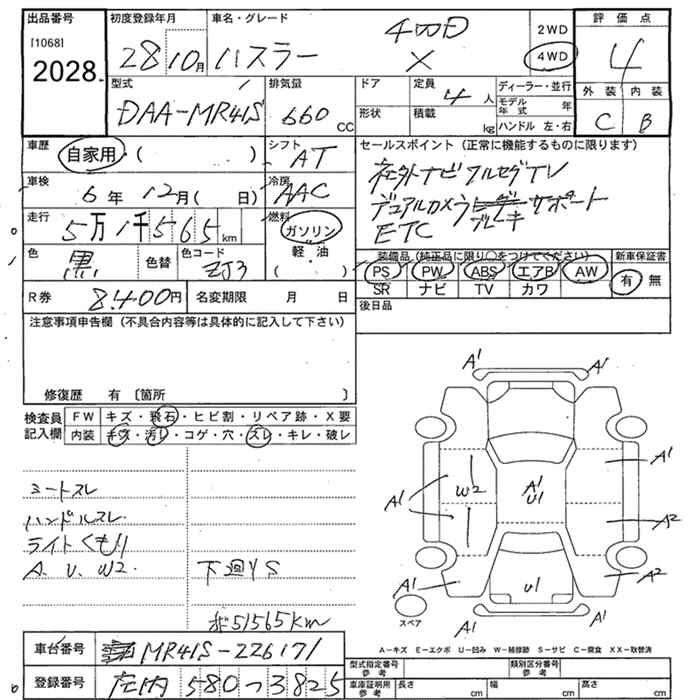 出品番号
[1068]
2028
初度登録年月
28 10月
車名・グレード
ハスラー
4WD
X
2WD
4WD
評価点
4
外装 内装
C B
型式
DAA-MR41S
排気量
660 CC
ドア
形状
定員
4人
積載
kg
ディーラー・並行
モデル年式 年
ハンドル 左・右
車歴
自家用・( )
シフト
AT
車検
6年 12月( 日)
冷房
AAC
走行
5万1千565km
燃料
ガソリン
軽・油
( )
色
黒
色替
色コード
ZJ3
R券
8.400円
名変期限 月 日
セールスポイント(正常に機能するものに限ります)
社外ナビ フルセグTV
デュアルカメラブレーキサポート
ETC
装備品(純正品に限り○をつけてください)
PS PW ABS エアB AW
SR ナビ TV カワ
新車保証書
有 無
後日品
注意事項申告欄(不具合内容等は具体的に記入して下さい)
修復歴 有 〔箇所 〕
検査員記入欄
FW キズ・飛石・ヒビ割・リペア跡・X要
内装 キズ・汚レ・コゲ・穴・スレ・キレ・破レ
シートスレ
ハンドルスレ
ライトくもり
A、U、W2 下廻りS
51565km
A1
A1
A1
A1
W2
A1
U1
A2
A1
U1
A2
A1
スペア
A-キズ E-エクボ U-凹み W-補修跡 S-サビ C-腐食 XX-取替済
車台番号
MR41S-226171
登録番号
庄内 580つ3825
型式指定番号
参考
類別区分番号
参考
車庫証明用
参考
長さ cm
幅 cm
高さ cm